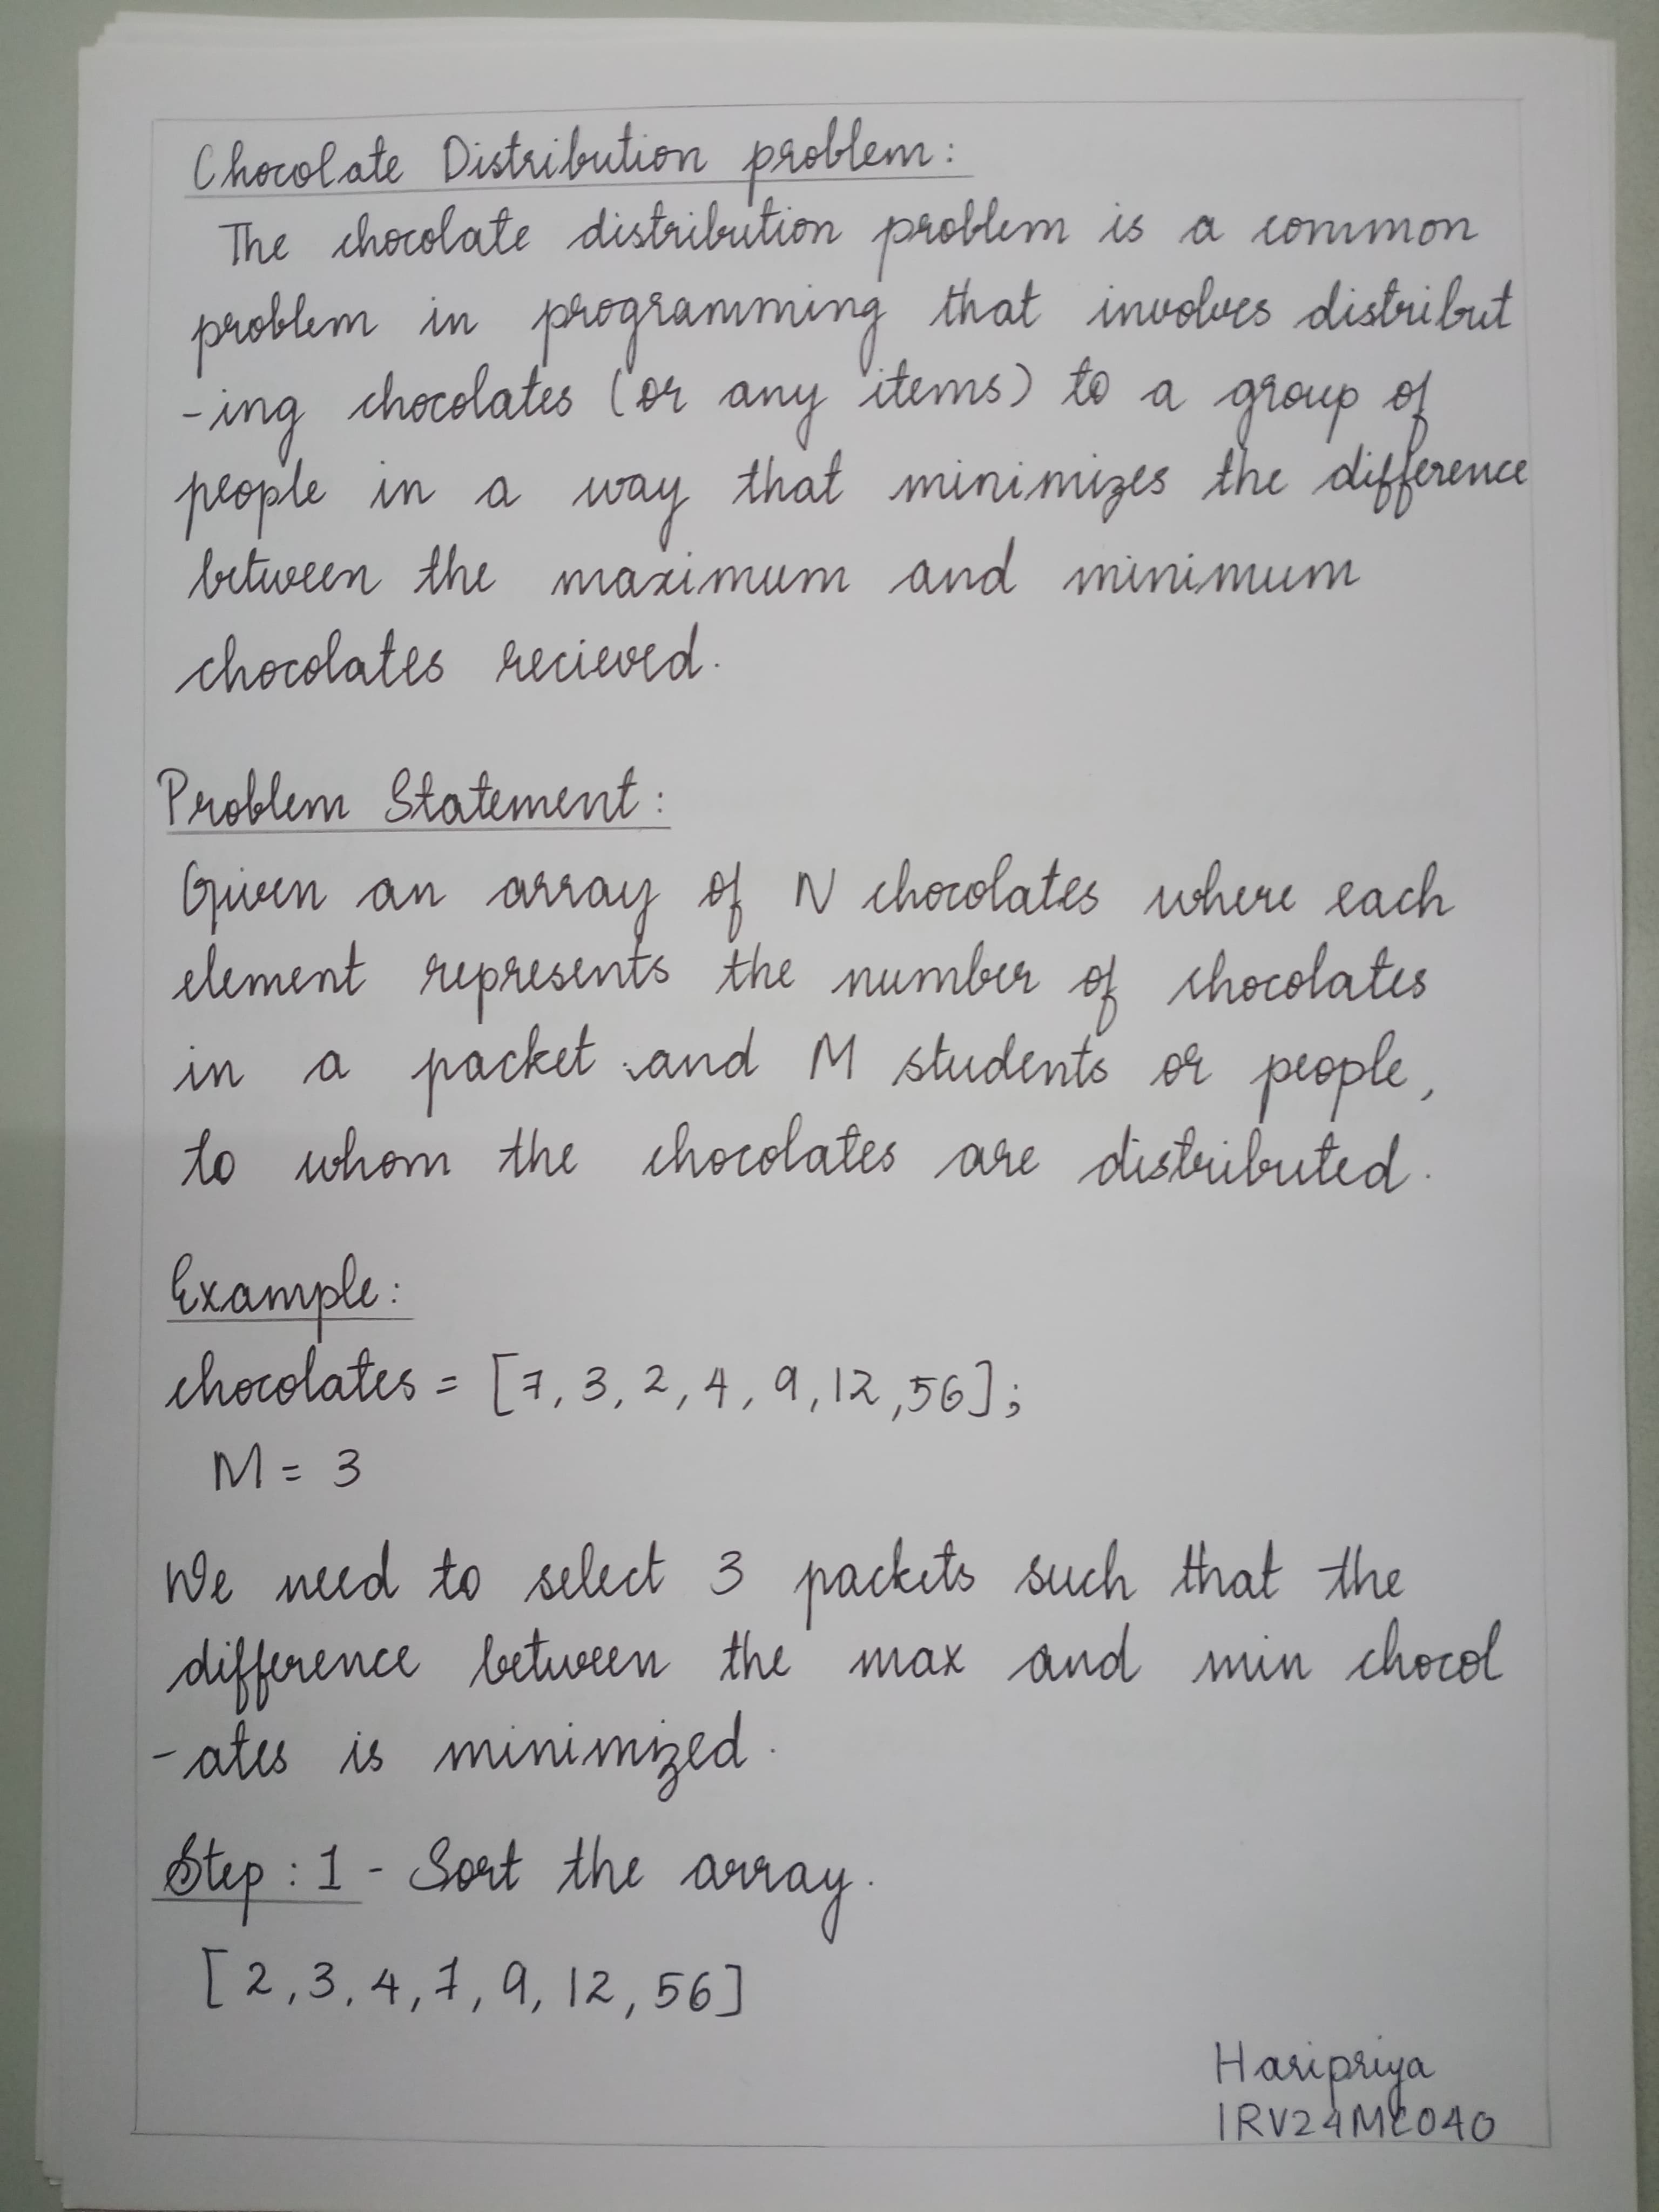 Chocolate Distribution problem:
The chocolate distribution problem is a common
problem in programming that involves distribut
-ing chocolates (or any items) to a group of
people in a way that minimizes the difference
between the maximum and minimum
chocolates recieved.
Problem Statement:
Given an array of N chocolates where each
element represents the number of chocolates
in a packet and M students or people,
to whom the chocolates are distributed.
Example:
chocolates = [7, 3, 2, 4, 9, 12, 56];
M = 3
We need to select 3 packets such that the
difference between the max and min chocol
-ates is minimized.
Step : 1 - Sort the array.
[2, 3, 4, 7, 9, 12, 56]
Haripriya
1RV24MC040